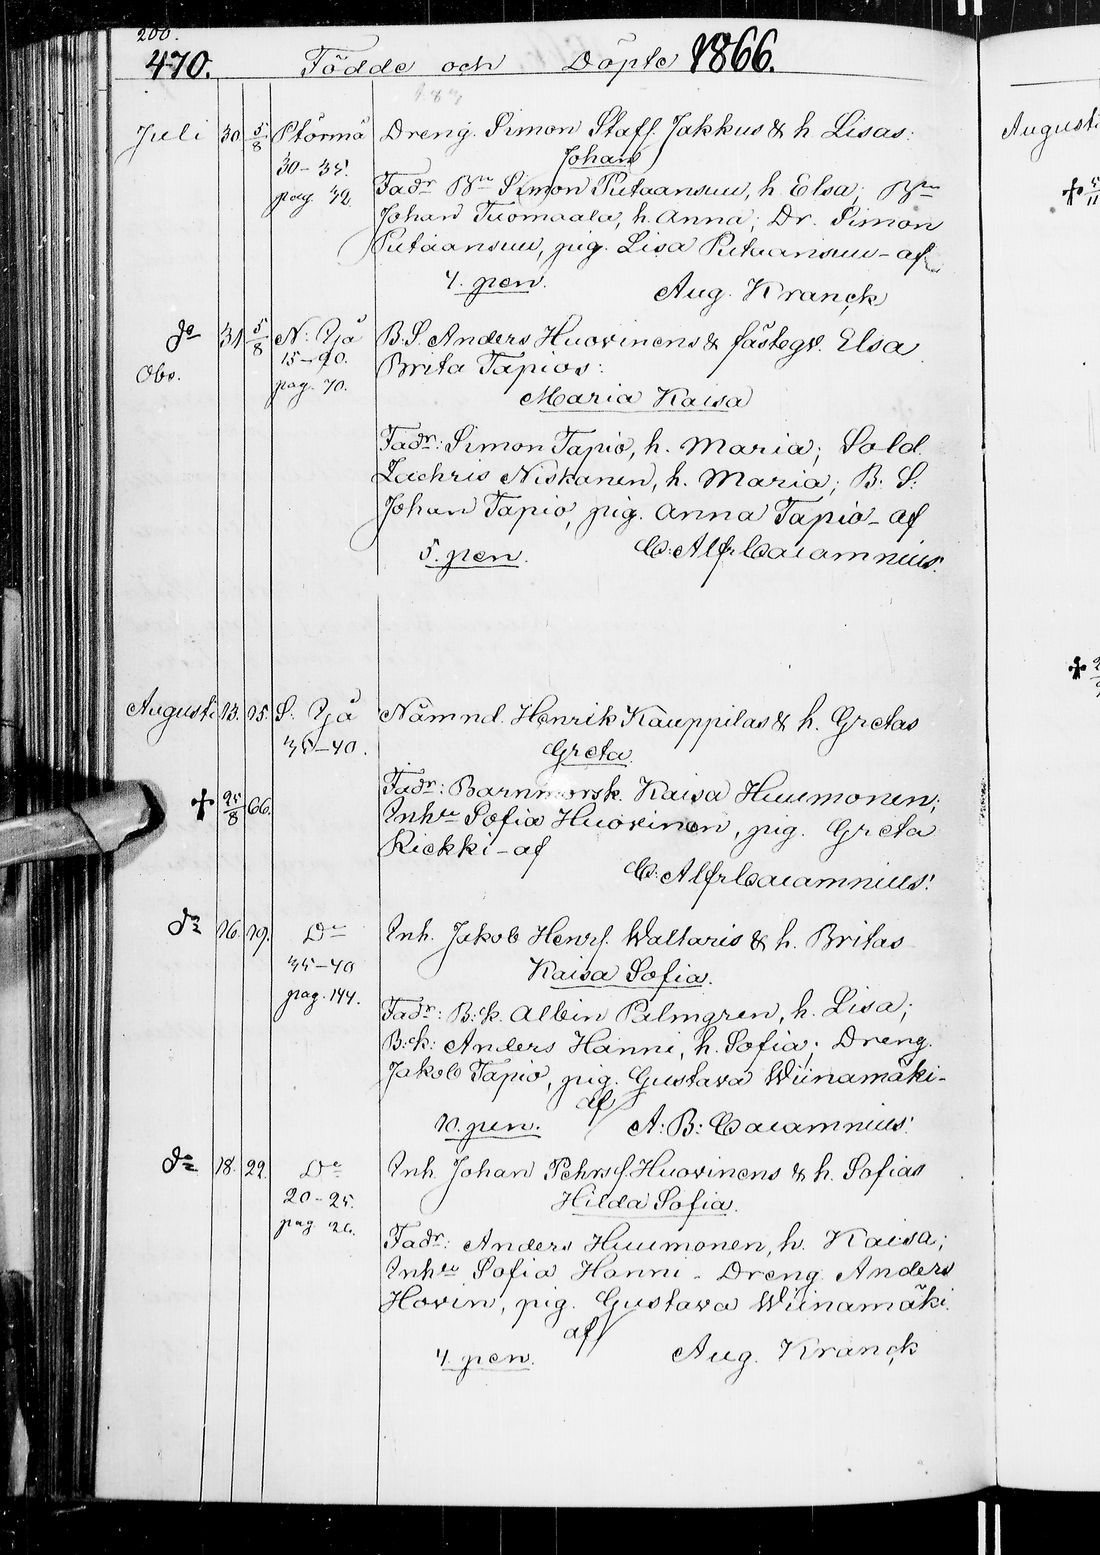 200.
470. Födde och Döpte 1866.
Juli 30 5/8 Ptörmä Dreng. Simon Staff. Jakkus & h. Lisas:
30-35. Johan
pag. 32 Fadr Bn Simon Putaansuu, h. Elsa; Bn
Johan Tuomaala, h. Anna; Dr. Simon
Putaansuu, pig. Lisa Putaansuu - af
4. pen. Aug. Kranck
do 31 5/8 N: Yjå B.S. Anders Huovinens & fästeqv. Elsa
Obs. 15-20. Brita Tapios:
pag. 70. Maria Kaisa
Fadr: Simon Tapio, h. Maria; Sold.
Zachris Niskanen, h. Maria; B: S:
Johan Tapio, pig. Anna Tapio - af
5. pen. C: Alfr Cajamnius:
Augusti 13. 15. S. Yjå Nämnd. Henrik Kauppilas & h. Gretas
35-40. Greta.
✝ 25/8 66. Fadr: Barnmorsk. Kaisa Huumonen;
Inhn Sofia Huovinen, pig. Greta
Kiekki - af
C: Alfr Cajamnius:
do 16. 19. Do Inh. Jakob Henrs. Waltaris & h. Britas
35-40 Kaisa Sofia.
pag. 144. Fadr: B:k. Albin Palmgren, h. Lisa;
B:k: Anders Hänni, h. Sofia; Dreng.
Jakob Tapio, pig. Gustava Wiinamäki -
af
10. pen. A: B: Cajamnius:
do 18. 22. Do Inh. Johan Pehrs. Huovinens & h. Sofias
20-25. Hilda Sofia.
pag 26. Fadr: Anders Huumonen, h. Kaisa;
Inhn Sofia Hänni - Dreng. Anders
Hovin, pig. Gustava Wiinamäki.
af
4. pen. Aug. Kranck
Augusti
✝
✝